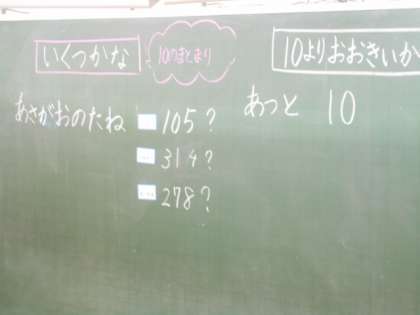 いくつかな
10のまとまり
10よりおおきいか
あさがおのたね
105?
314?
278?
あっと 10